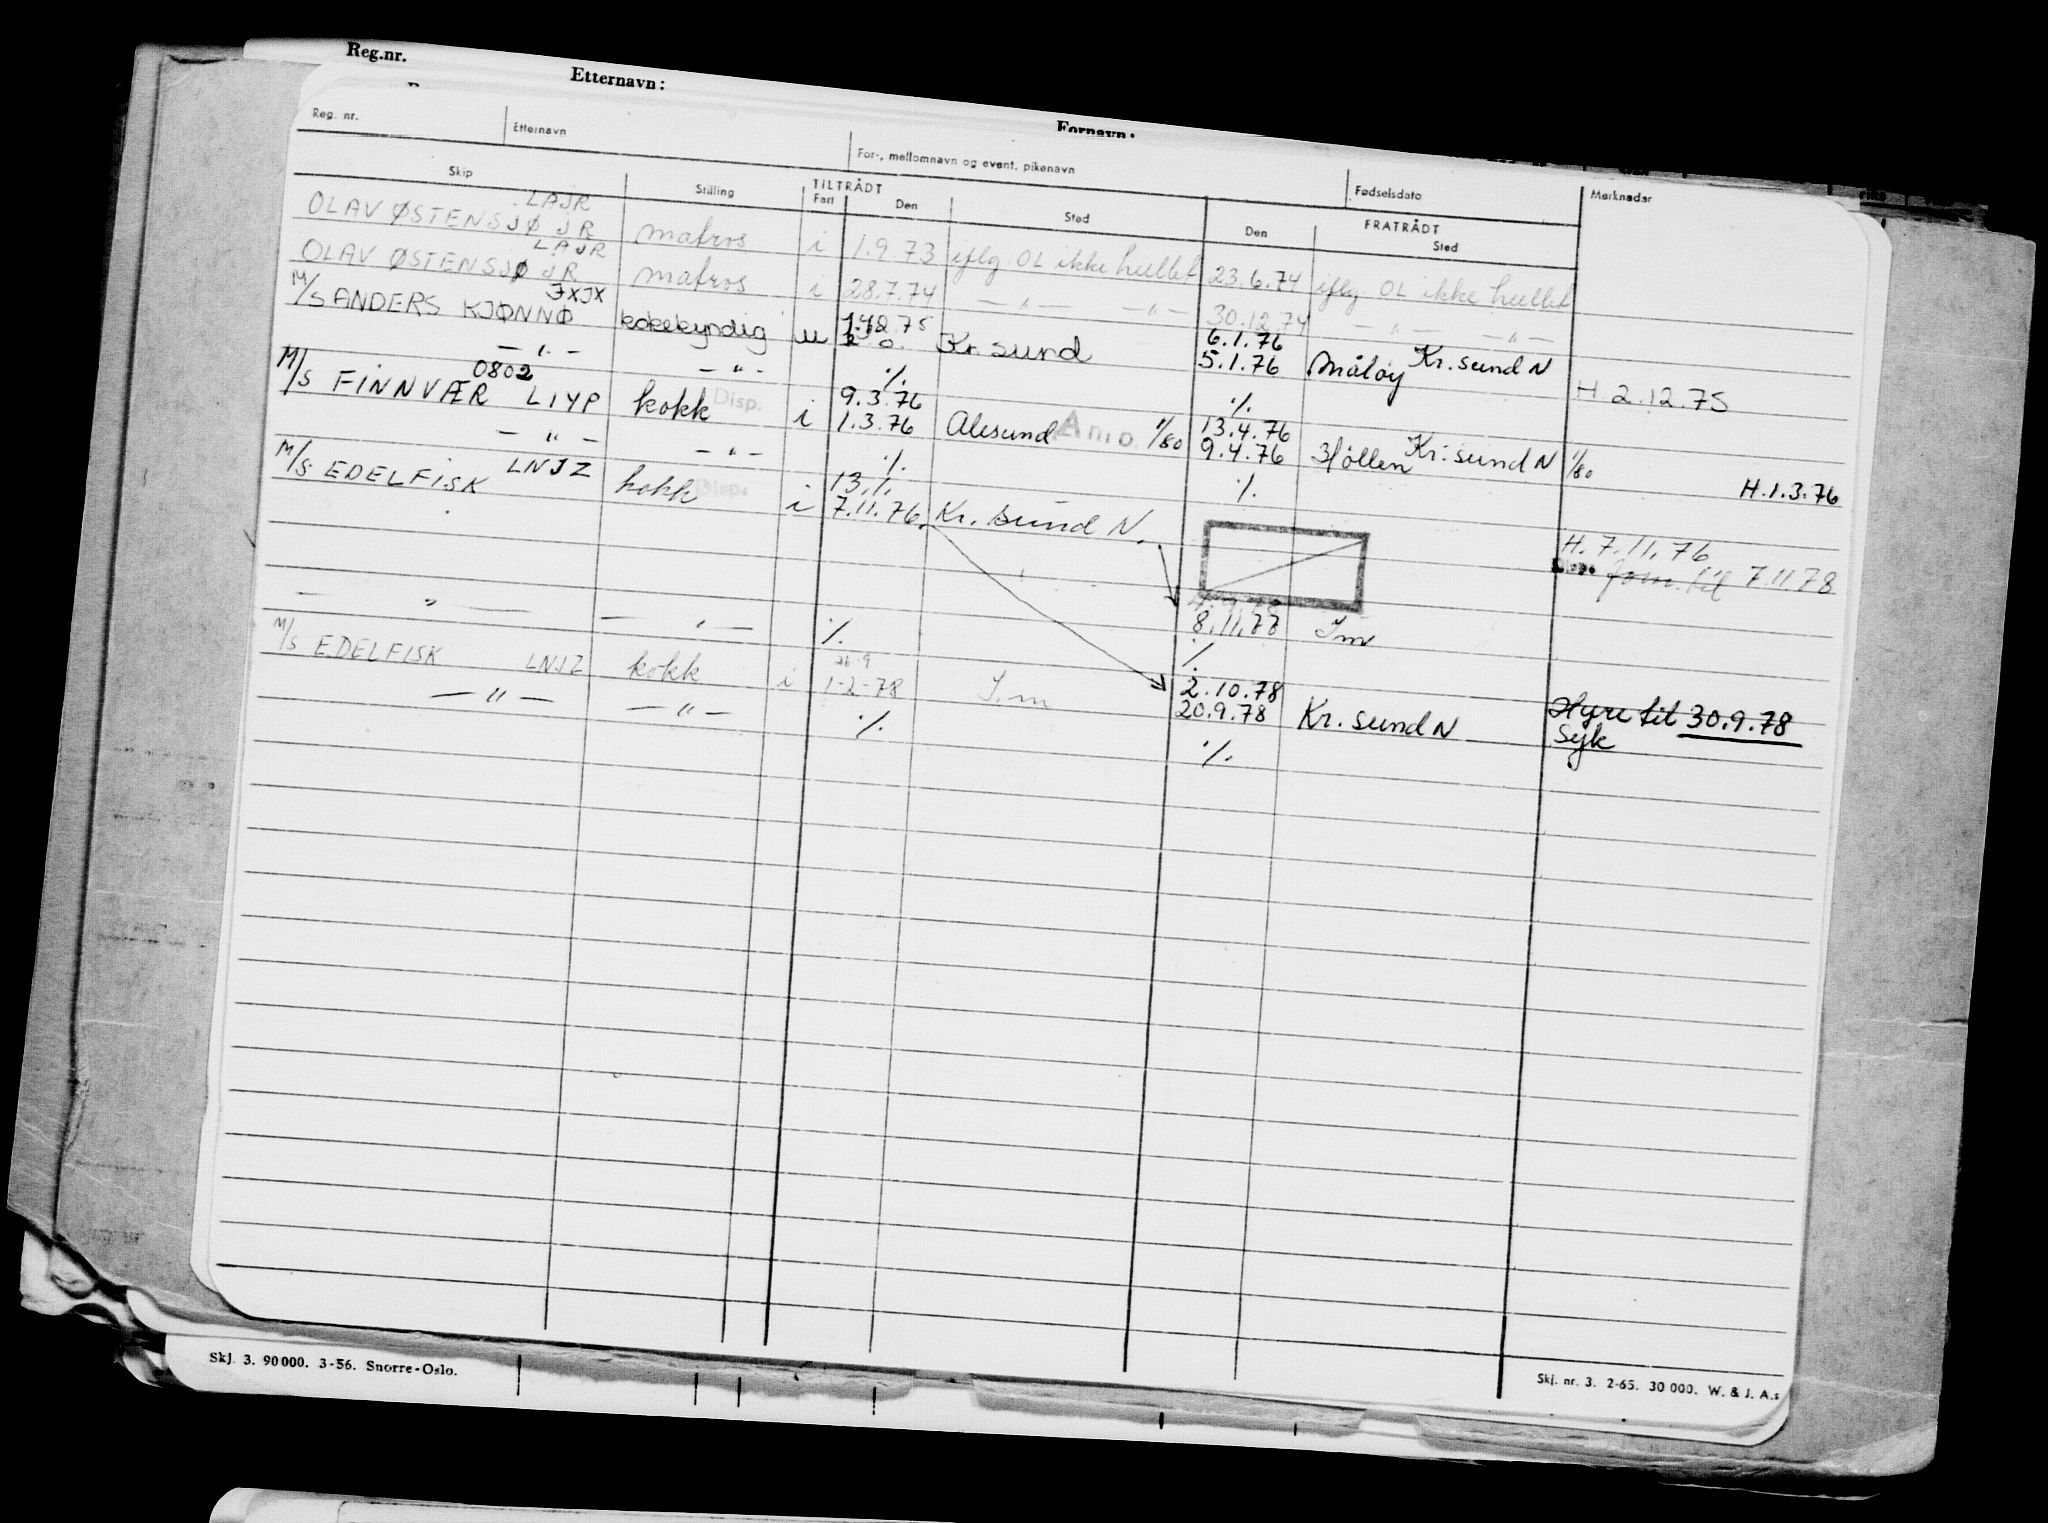 Reg.nr. Etternavn: Fornavn:
Reg. nr. Etternavn For-, mellomnavn og event. pikenavn Fødselsdato Merknader
Skip Stilling TILTRÅDT FRATRÅDT
Fart Den Sted Den Sted
LAJR
OLAV ØSTENSJØ JR matros i 1.9.73 iflg. OL ikke hullet 23.6.74 iflg. OL ikke hullet
LAJR
OLAV ØSTENSJØ JR matros i 28.7.74 — " — — " — 30.12.74 — " — — " —
JXJX
M/S ANDERS KJØNNØ kokekyndig u Kr. sund 6.1.76
5.1.76 Måløy Kr. sund N H. 2.12.75
— " — — " — % %
0802 Disp. 9.3.76 13.4.76
M/S FINNVÆR LIYP kokk i 1.3.76 Ålesund 1/80 9.4.76 Kr. sund N 1/80 H.1.3.76
— " — — " — % %
LNJZ
M/S EDELFISK kokk i 7.11.76 Kr. sund N. H. 7.11.76
fom. til 7.11.78
— " — — " — % 8.11.77 Im
%
26.9
M/S EDELFISK LNJZ kokk i 1-2-78 I.m 2.10.78
20.9.78 Kr. sund N Hyre til 30.9.78
Syk
— " — — " — % %
Skj. 3. 90000. 3-56. Snorre-Oslo.
Skj. nr. 3. 2-65. 30 000. W. & J. A.s